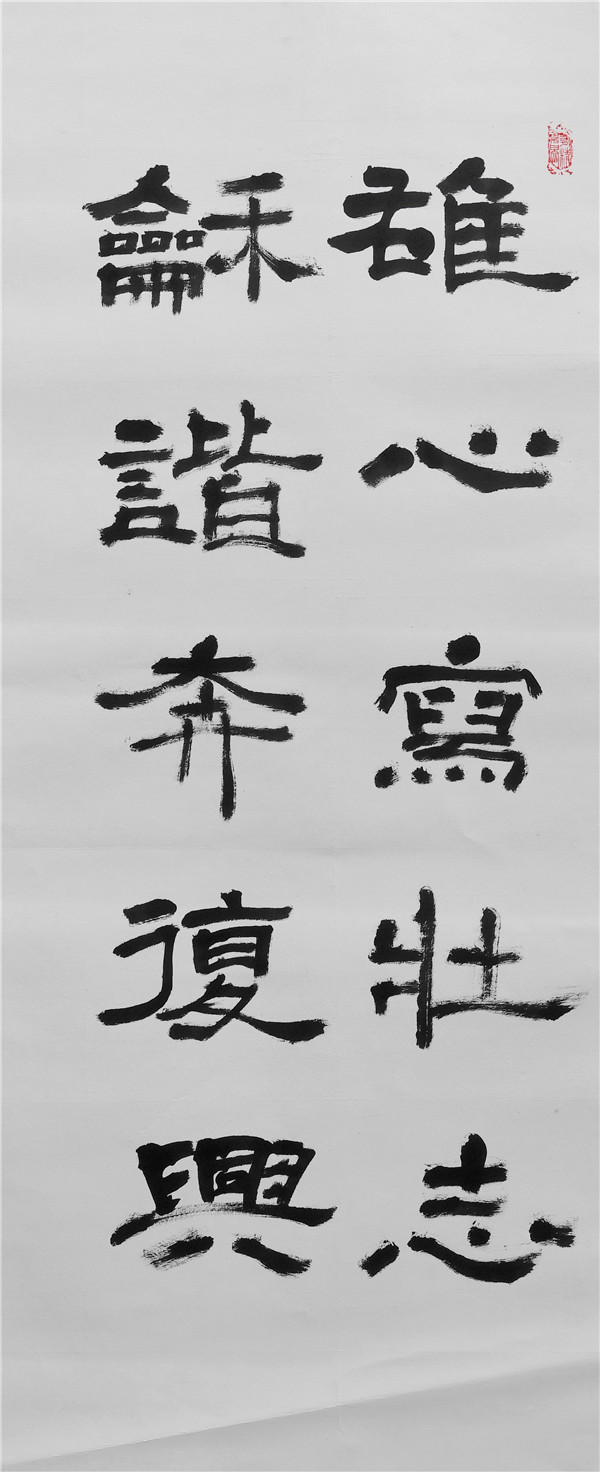 雄心寫壯志
龢諧奔復興